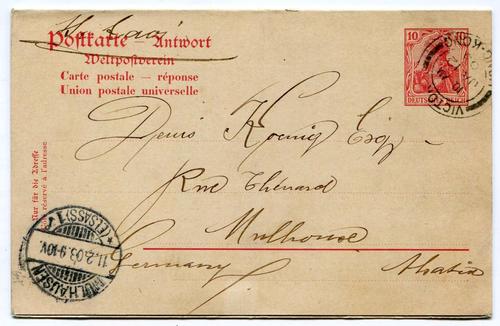 Postkarte – Antwort
Weltpostverein
Carte postale – réponse
Union postale universelle
10
DEUTSCHES REICH
VICTORIA HONG-KONG
Nur für die Adresse
Côté réservé à l'adresse
Denis Koenig Esq
Rue Thénard
Mulhouse
Germany Alsatia
MÜLHAUSEN (ELSASS) 1
11.2.03.9-10V.